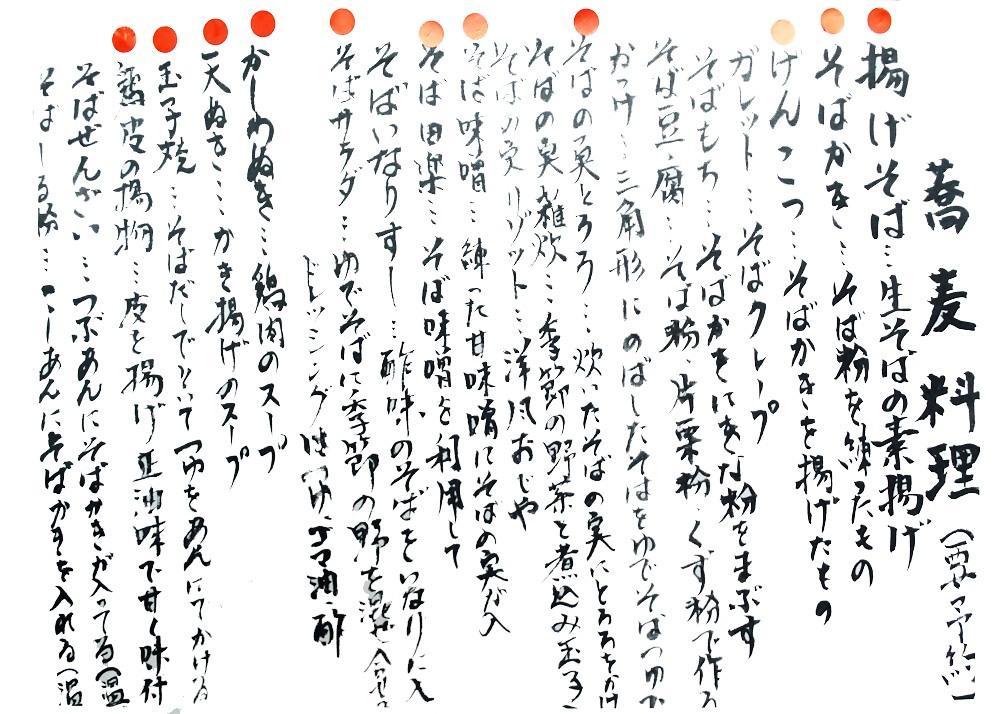 蕎麦料理（要予約）
揚げそば…生そばの素揚げ
そばかき…そば粉を練ったもの
げんこつ…そばかきを揚げたもの
ガレット…そばクレープ
そばもち…そばかきにきな粉をまぶす
そば豆腐…そば粉・片栗粉・くず粉で作る
おっけ…三角形にのばしたそばをゆでそばつゆで
そばの実とろろ…炊いたそばの実にとろろをかけ
そばの実雑炊…季節の野菜と煮込み玉子
そばの実リゾット…洋風おじや
そば味噌…練った甘味噌にそばの実が入
そば田楽…そば味噌を利用して
そばいなりすし…酢味のそばをいなりに入
そばサラダ…ゆでそばに季節の野を混ぜ合せる
ドレッシングはつゆ、ゴマ油、酢
かしわぬき…鶏肉のスープ
天ぬき…かき揚げのスープ
玉子焼…そばだしでといてつゆをあんにてかける
鶏皮の揚物…皮を揚げ正油味で甘く味付
そばぜんざい…つぶあんにそばかきが入ってる（温
そばしる粉…こしあんにそばかきを入れる（温